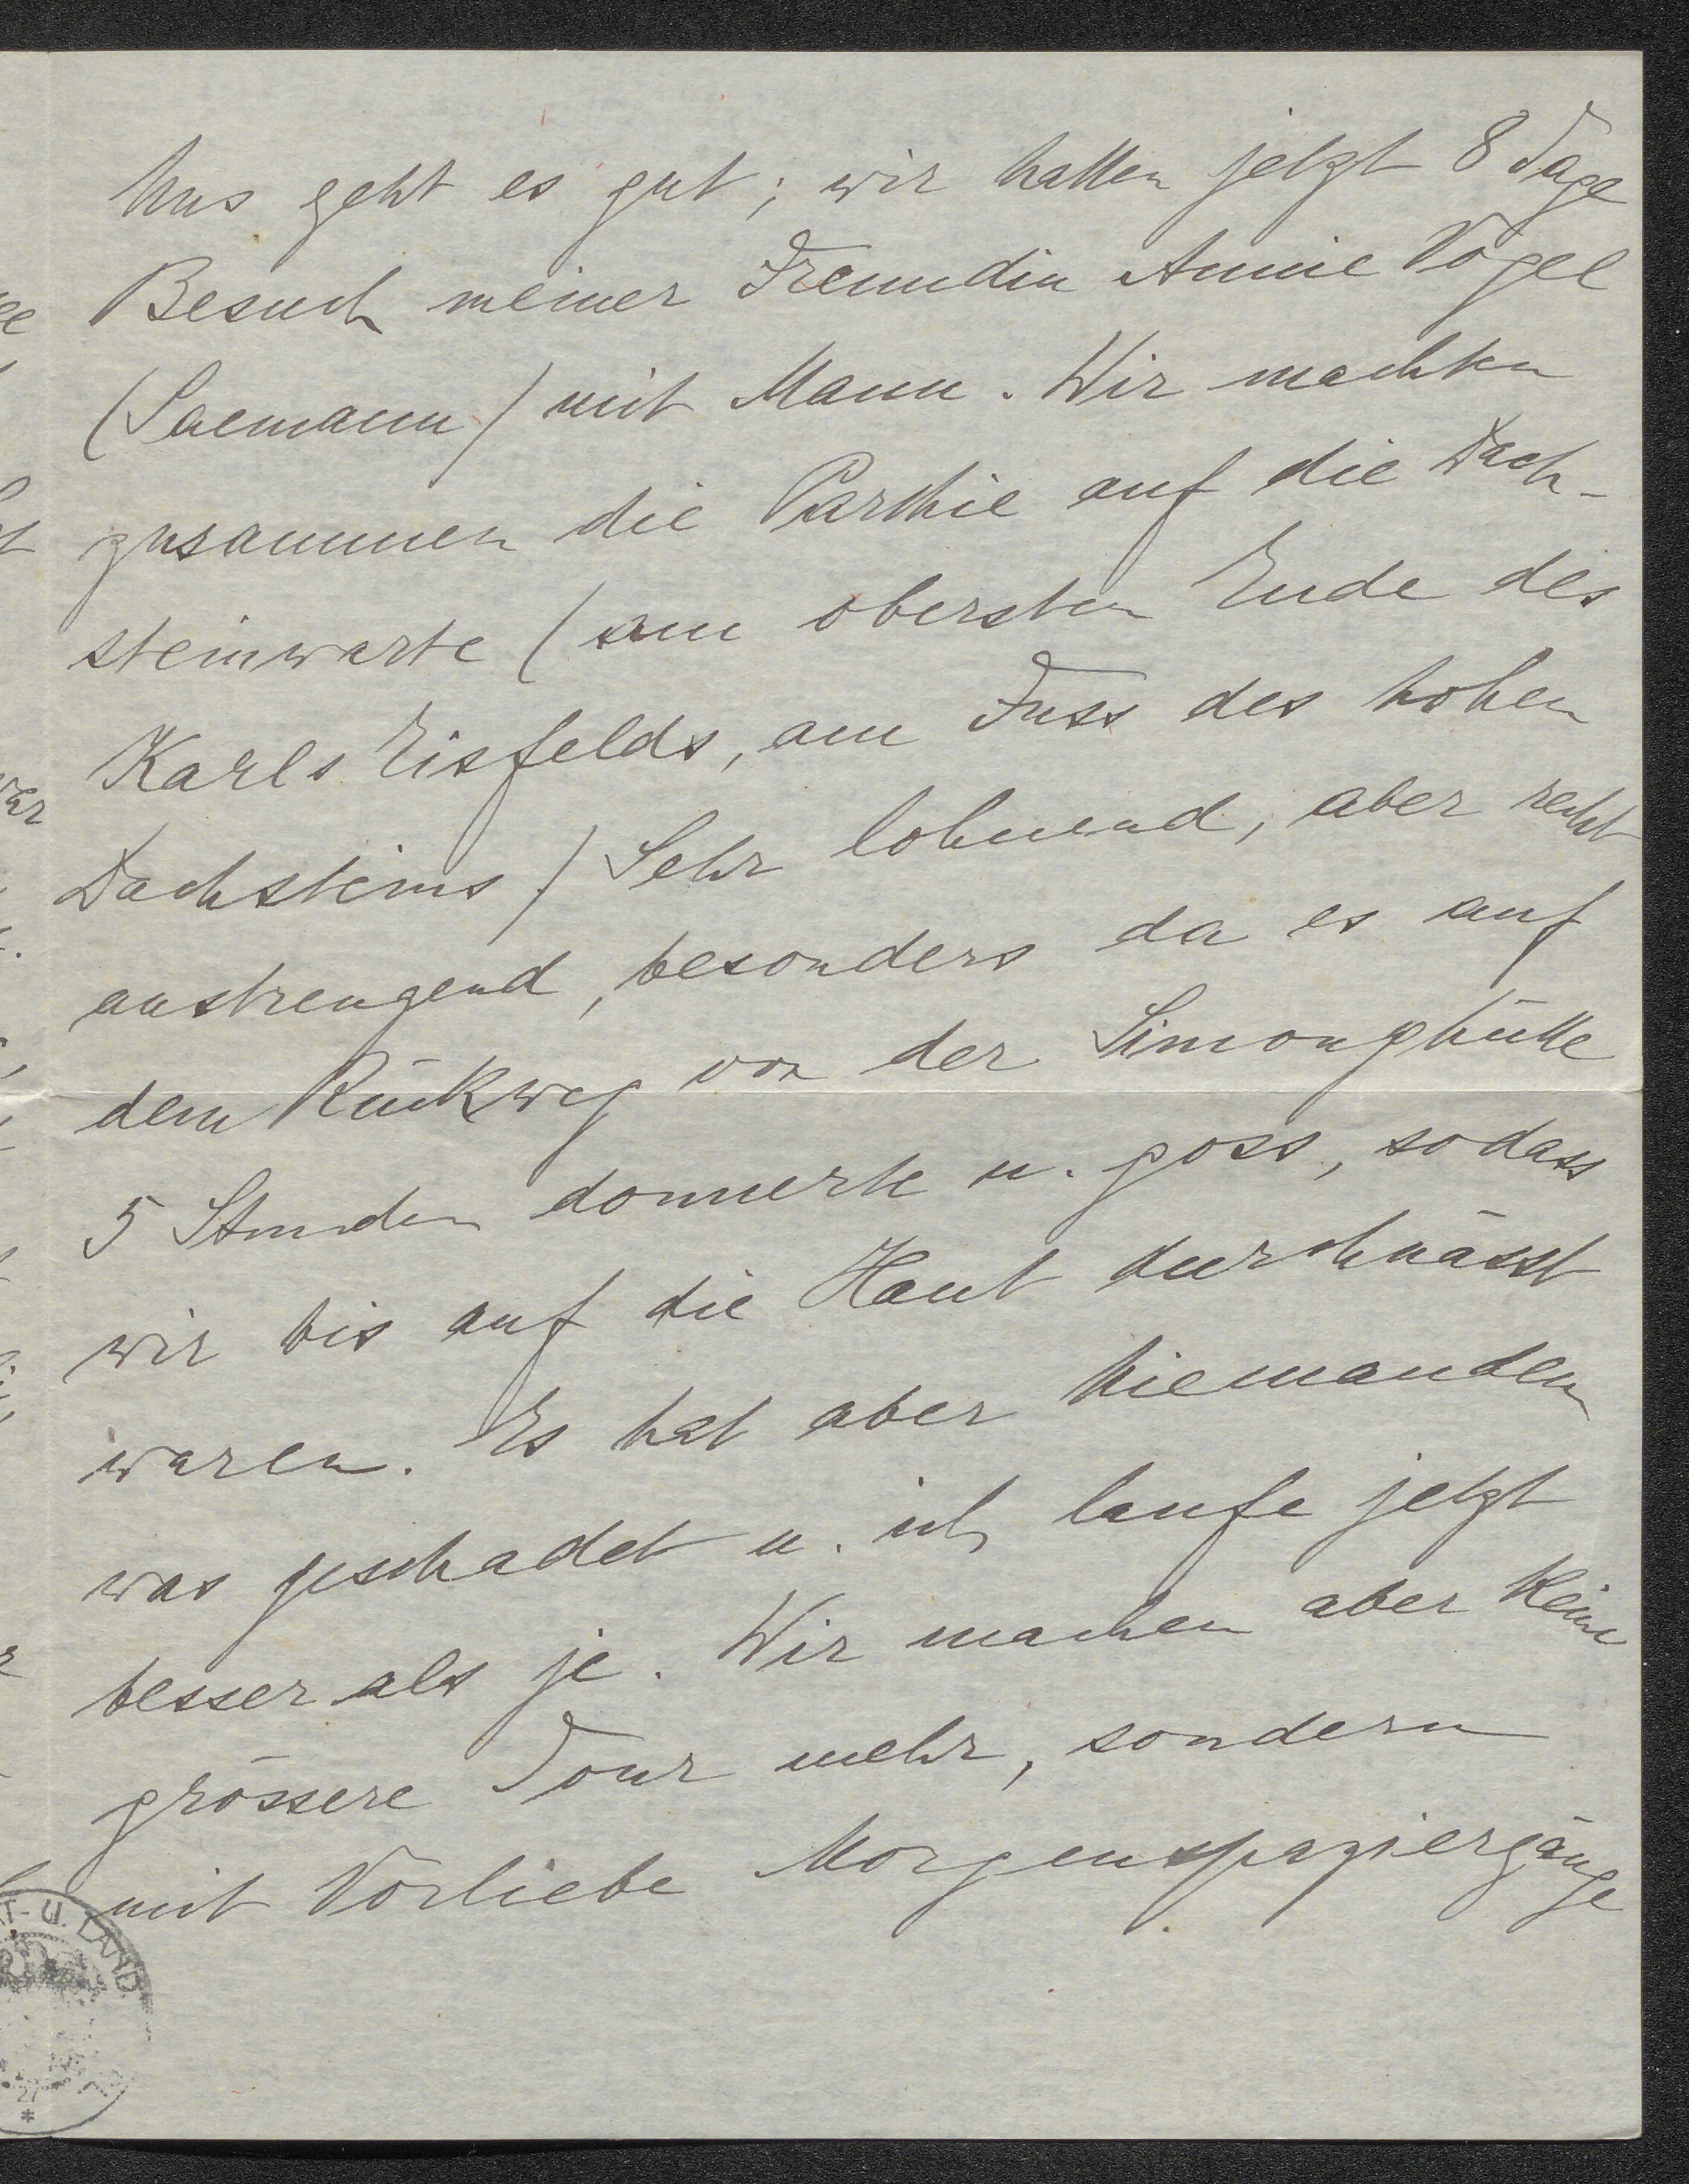 Uns geht es gut; wir hatten jetzt 8 Tage
Besuch meiner Freundin Annie Vogel
(Saemann) mit Mann. Wir machten
zusammen die Parthie auf die Dach-
steinwarte (am obersten Ende des
Karls Eisfelds, am Fuss des hohen
Dachsteins) Sehr lohnend, aber recht
anstrengend, besonders da es auf
dem Rückweg von der Simonyhütte
5 Stunden donnerte u. goss, sodass
wir bis auf die Haut durchnässt
waren. Es hat aber Niemanden
was geschadet u. ich laufe jetzt
besser als je. Wir machen aber keine
grössere Tour mehr, sondern
mit Vorliebe Morgenspaziergänge
T- U. LAND